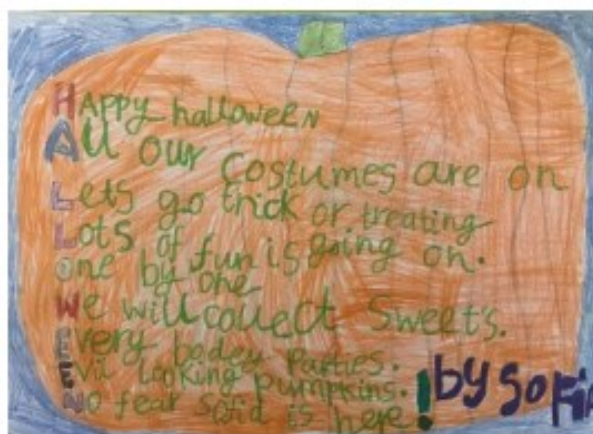 Happy halloween
All our costumes are on
Lets go trick or treating
Lots of fun is going on.
One by one
We will collect Sweet's.
Every bodey Parties.
Evil Looking pumpkins.
No fear Sofia is here!
by Sofia